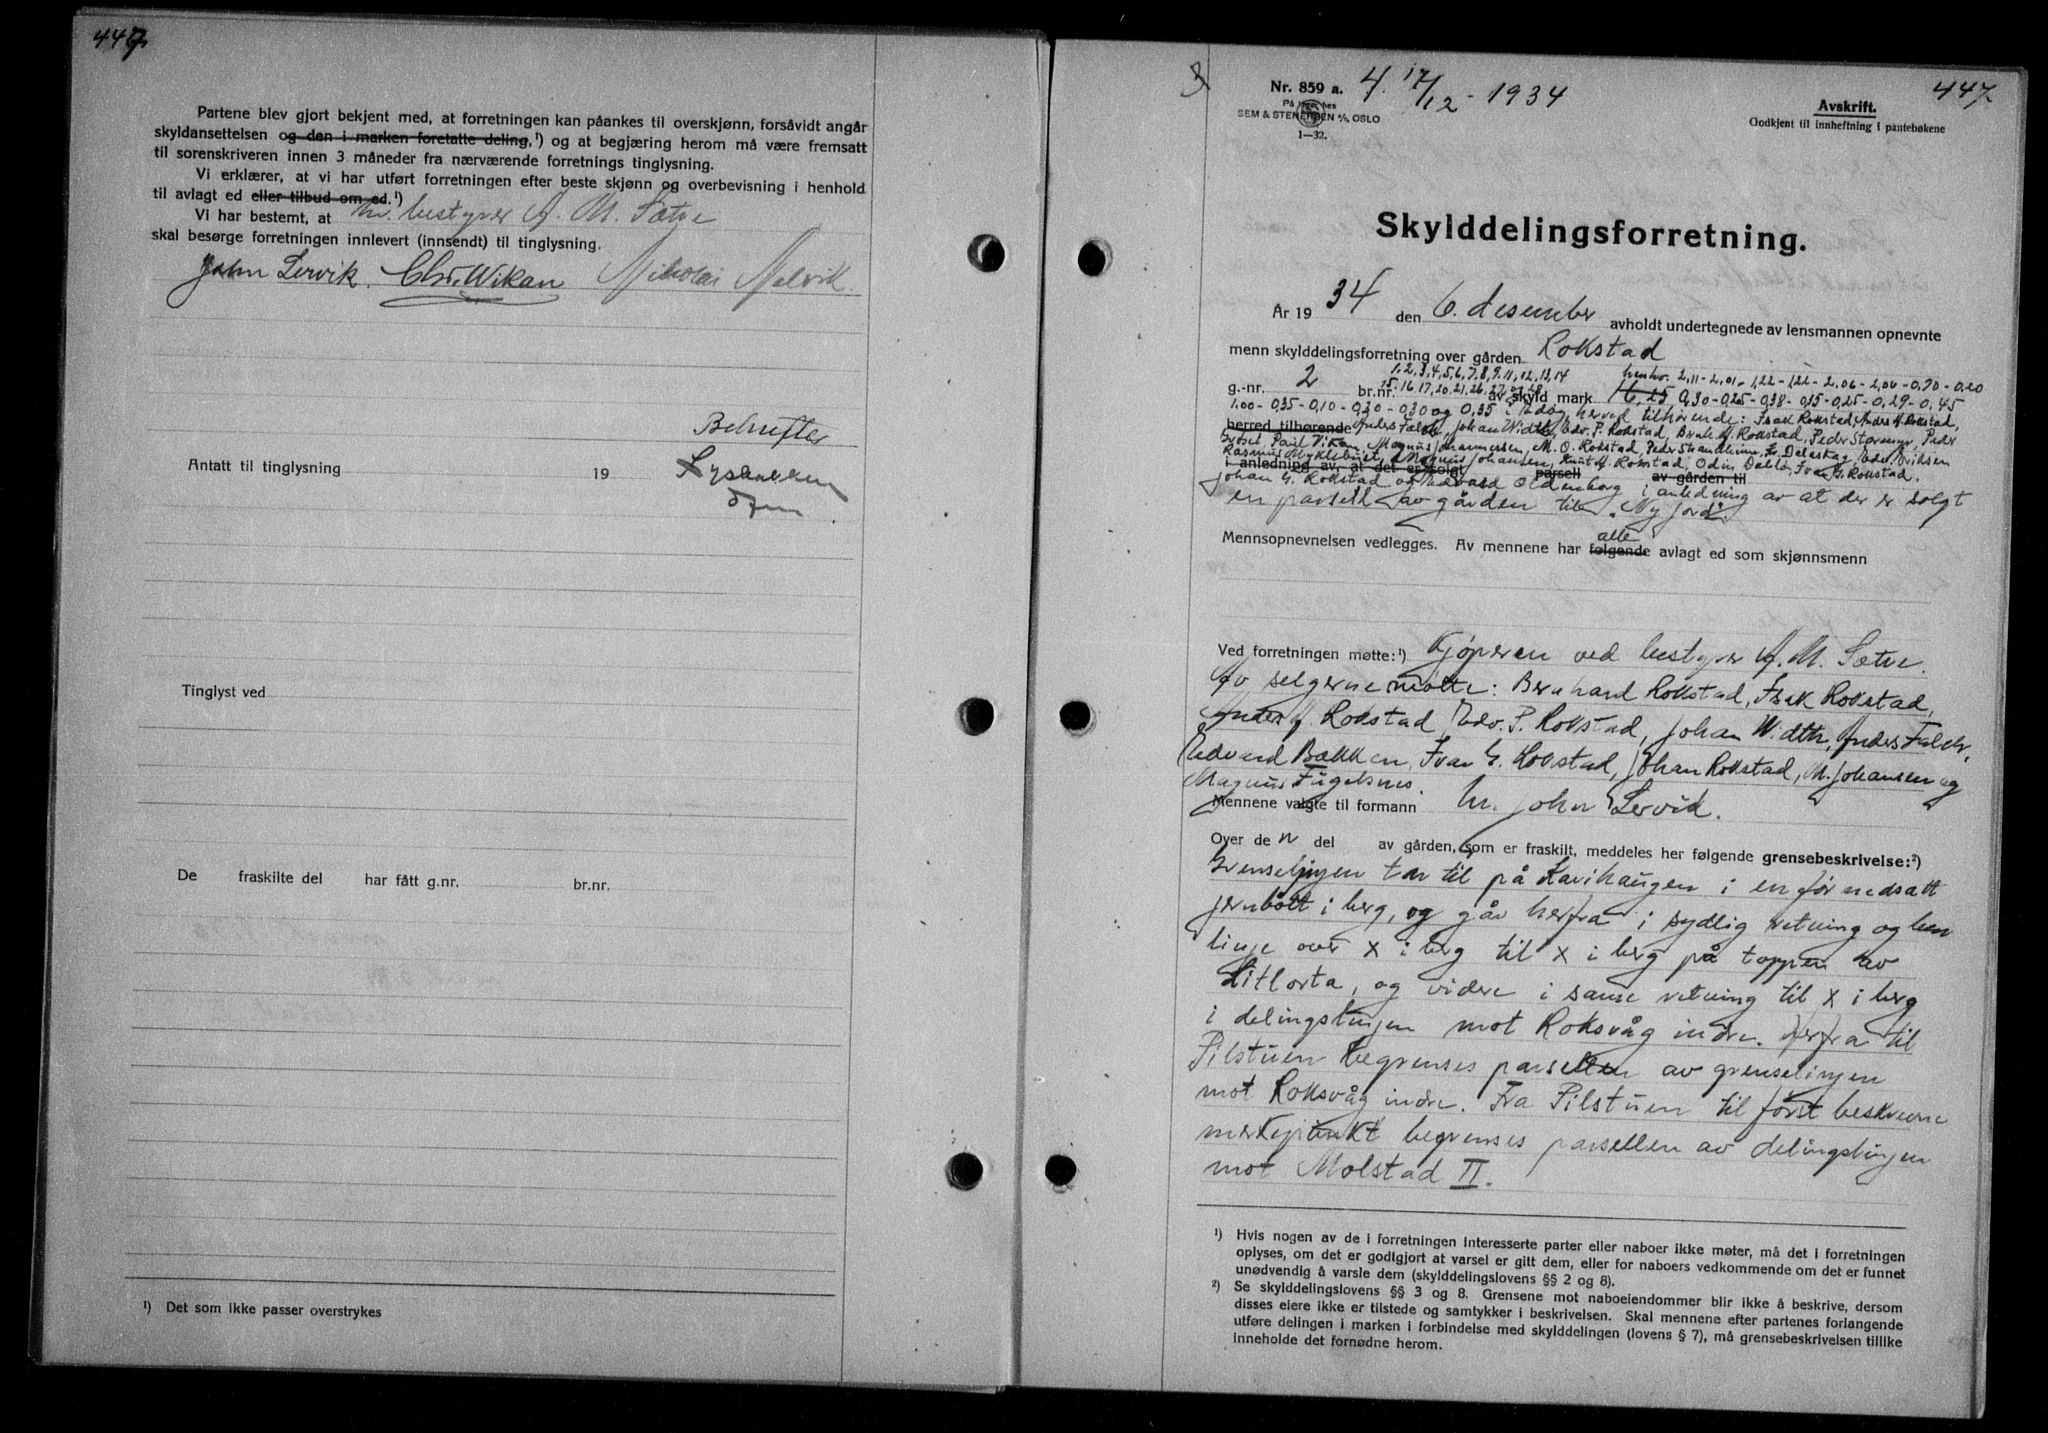 447
Partene blev gjort bekjent med, at forretningen kan påankes til overskjønn, forsåvidt angår
skyldansettelsen og den i marken foretatte deling,¹) og at begjæring herom må være fremsatt
til sorenskriveren innen 3 måneder fra nærværende forretnings tinglysning.
Vi erklærer, at vi har utført forretningen efter beste skjønn og overbevisning i henhold
til avlagt ed eller tilbud om ed.¹)
Vi har bestemt, at hr. bestyrer A. M. Sætre
skal besørge forretningen innlevert (innsendt) til tinglysning.
John Lervik. Chr. Wikan Nikolai Malvik.
Bekreftes
Antatt til tinglysning 19
Tinglyst ved
De fraskilte del har fått g.nr. br.nr.
¹) Det som ikke passer overstrykes
Nr. 859 a.
På lager hos
SEM & STENERSEN A/S, OSLO
1—32.
4. 17/12 - 1934
447
Avskrift.
Godkjent til innheftning i pantebøkene
Skylddelingsforretning.
År 1934 den 6. desember avholdt undertegnede av lensmannen opnevnte
menn skylddelingsforretning over gården Rokstad
1, 2, 3, 4, 5, 6, 7, 8, 9, 11, 12, 13, 14 henhv. 2,11 - 2,01 - 1,22 - 1,22 - 2,06 - 2,00 - 0,70 - 0,20
g.-nr. 2 br.nr. 15, 16, 17, 20, 21, 26, 27 og 28 av skyld mark 16,25 0,30 - 0,25 - 0,38 - 0,15 - 0,25 - 0,29 - 0,45
1,00 - 0,35 - 0,10 - 0,30 - 0,30 og 0,35 i Edøy herred tilhørende: Isak Rokstad, Anders A. Rokstad,
herred tilhørende Anders Falch, Johan Width, Edv. P. Rokstad, Bernh. A. Rokstad, Peder Storenuv, Peder
Paul Vikan, Magnus Johannessen, M. O. Rokstad, Peder Strandheim, Edv. Eriksen
Rasmus Myklebust, Magnus Johansen, Knut A. Rokstad, Odin Dahlø, Ivar G. Rokstad.
i anledning av, at det er solgt parsell av gården til
Johan G. Rokstad og Edvard Oldenborg i anledning av at der er solgt
en parsell av gården til "Ny jord".
Mennsopnevnelsen vedlegges. Av mennene har følgende alle avlagt ed som skjønnsmenn
Ved forretningen møtte:¹) Kjøperen ved bestyrer A. M. Sætre.
Av selgerne møtte: Bernhard Rokstad, Isak Rokstad,
Anders A. Rokstad, Edv. P. Rokstad, Johan Width, Anders Falch,
Edvard Bakken, Ivar G. Rokstad, Johan Rokstad, M. Johansen og
Magnus Fugelsnes.
Mennene valgte til formann hr. John Lervik.
Over de n del av gården, som er fraskilt, meddeles her følgende grensebeskrivelse:²)
Grenselinjen tar til på Kavihaugen i en før nedsatt
jernbolt i berg, og går herfra i sydlig retning og ben
linje over x i berg til x i berg på toppen av
Litlorta, og videre i samme retning til x i berg
i delingslinjen mot Roksvåg indre. Herfra til
Pilstuen begrenses parsellen av grenselinjen
mot Roksvåg indre. Fra Pilstuen til først beskrevne
merkepunkt begrenses parsellen av delingslinjen
mot Molstad II.
¹) Hvis nogen av de i forretningen interesserte parter eller naboer ikke møter, må det i forretningen
oplyses, om det er godtgjort at varsel er gitt dem, eller for naboers vedkommende om det er funnet
unødvendig å varsle dem (skylddelingslovens §§ 2 og 8).
²) Se skylddelingslovens §§ 3 og 8. Grensene mot naboeiendommer blir ikke å beskrive, dersom
disses eiere ikke er tilstede og samtykker i beskrivelsen. Skal mennene efter partenes forlangende
utføre delingen i marken i forbindelse med skylddelingen (lovens § 7), må grensebeskrivelsen tillike
inneholde det fornødne herom.